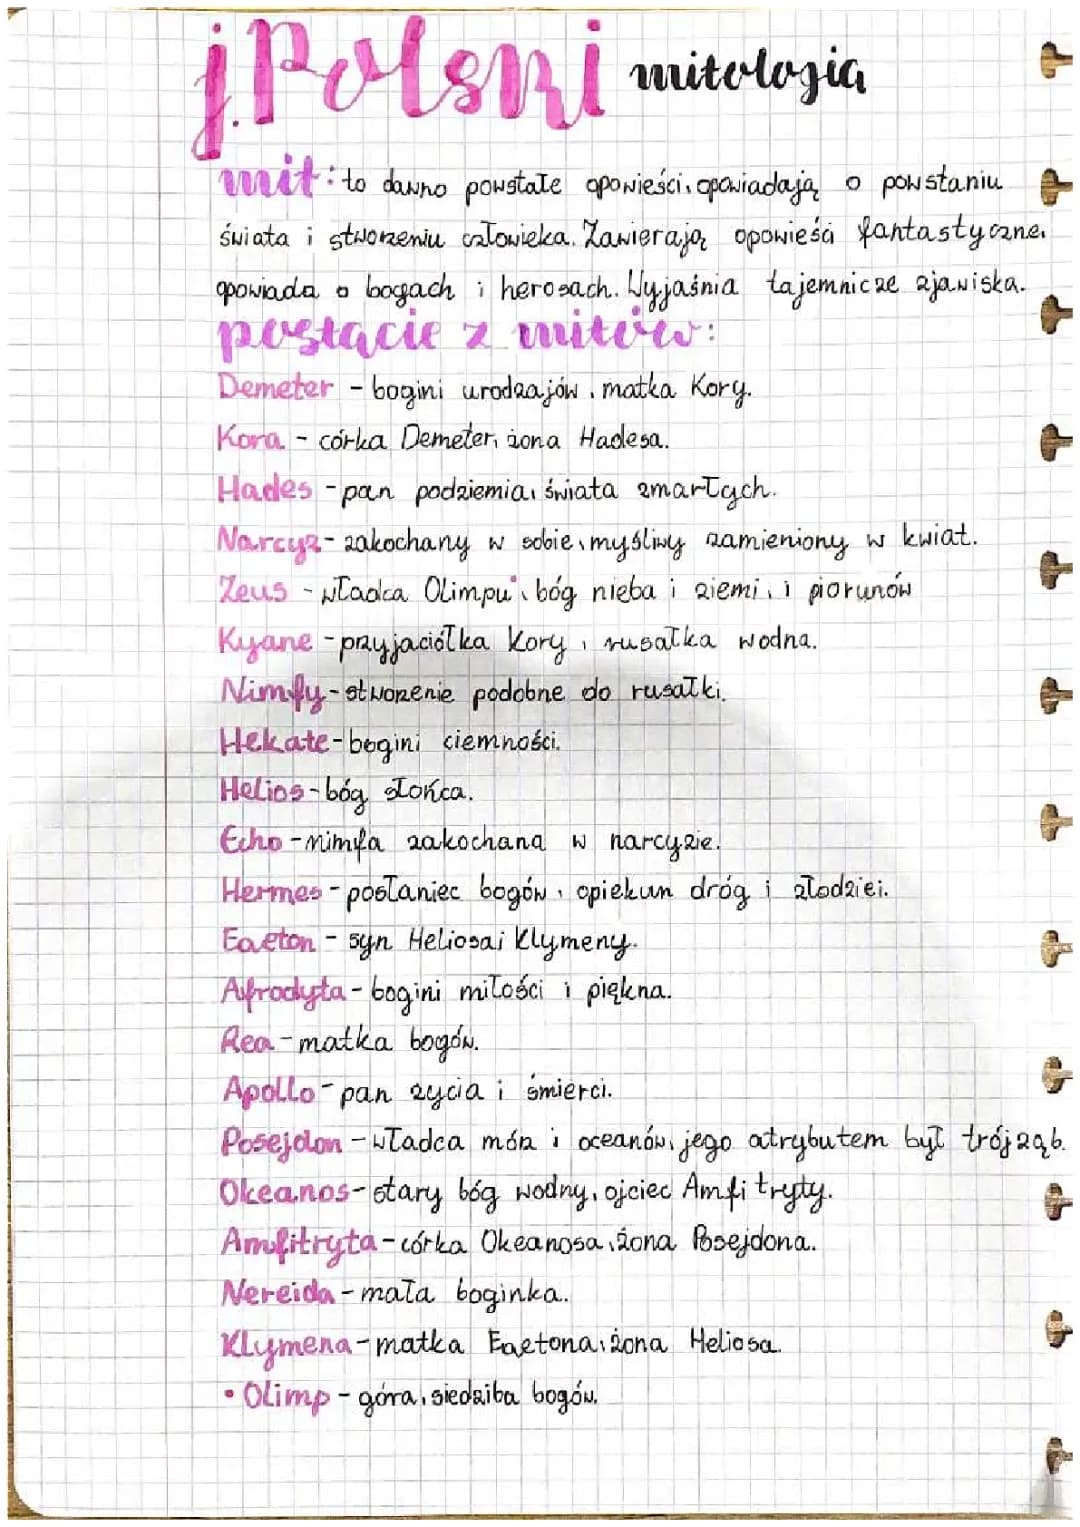 j.Polski mitologia
mit: to dawno powstałe opowieści, opowiadają o powstaniu
świata i stworzeniu człowieka. Zawierają opowieści fantastyczne.
opowiada o bogach i herosach. Wyjaśnia tajemnicze zjawiska.
postacie z mitów:
Demeter - bogini urodzajów, matka Kory.
Kora - córka Demeter, żona Hadesa.
Hades - pan podziemia, świata zmarłych.
Narcyz - zakochany w sobie, myśliwy zamieniony w kwiat.
Zeus - władca Olimpu, bóg nieba i ziemi, i piorunów
Kyane - przyjaciółka Kory, rusałka wodna.
Nimfy - stworzenie podobne do rusałki.
Hekate - bogini ciemności.
Helios - bóg słońca.
Echo - nimfa zakochana w narcyzie.
Hermes - posłaniec bogów, opiekun dróg i złodziei.
Faeton - syn Heliosa i Klymeny.
Afrodyta - bogini miłości i piękna.
Rea - matka bogów.
Apollo - pan życia i śmierci.
Posejdon - władca mórz i oceanów, jego atrybutem był trójząb.
Okeanos - stary bóg wodny, ojciec Amfitryty.
Amfitryta - córka Okeanosa, żona Posejdona.
Nereida - mała boginka.
Klymena - matka Faetona, żona Heliosa.
• Olimp - góra, siedziba bogów.